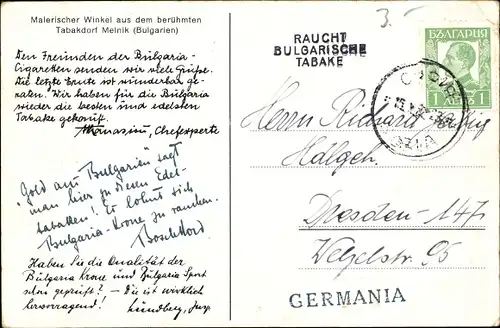 Malerischer Winkel aus dem berühmten
Tabakdorf Melnik (Bulgarien)
Den Freunden der Bulgaria-
Cigaretten senden wir viele Grüße.
Die letzte Ernte ist wunderbar ge-
raten. Wir haben für die Bulgaria
wieder die besten und edelsten
Tabake gekauft.
Athanasiu, Chefexperte
"Gold aus Bulgarien" sagt
man hier zu diesen Edel-
tabaken! Es lohnt sich
Bulgaria-Krone zu rauchen.
Haben Sie die Qualität der
Bulgaria Krone und Bulgaria Sport
schon geprüft? – Die ist wirklich
hervorragend! Lundberg, Insp.
3.-
RAUCHT
BULGARISCHE
TABAKE
БЪЛГАРИЯ
1 ЛЕВ 1
Herrn Richard
Dresden-
95
GERMANIA